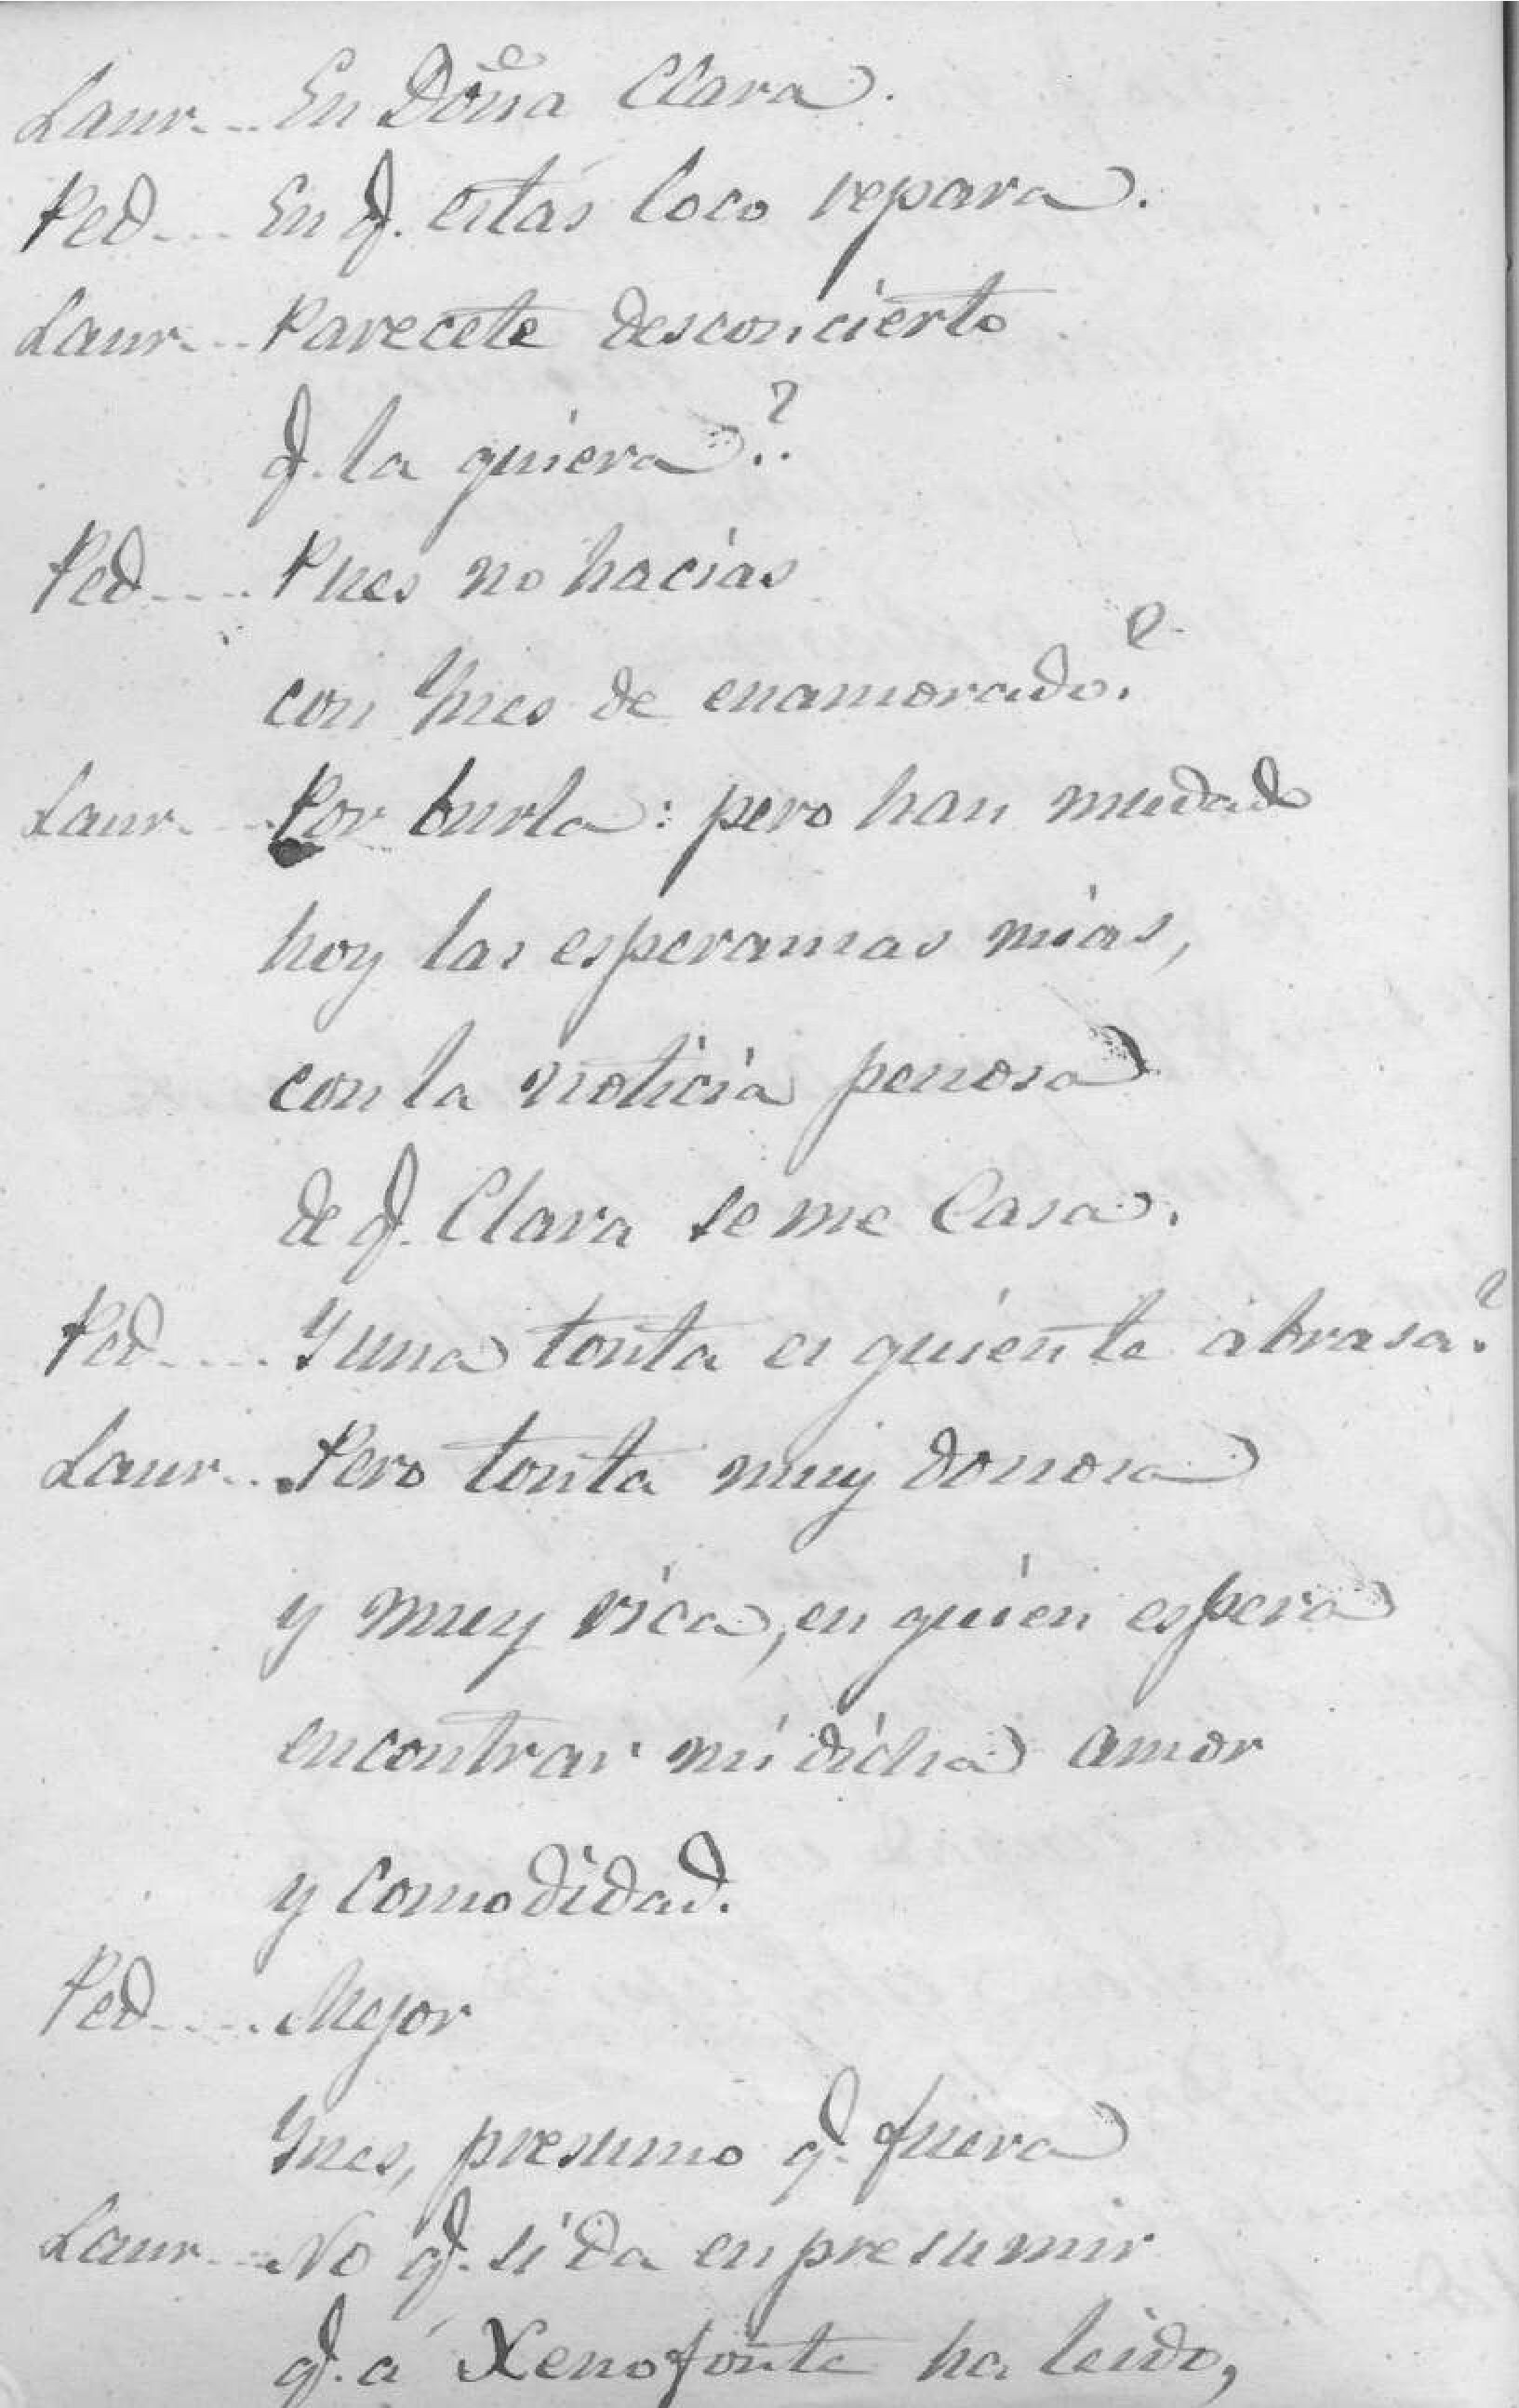 Laur... En Doña Clara.
Ped.... En q. estás loco repara.
Laur... Parecete desconcierto
q. la quiera?
Ped.... Pues no hacias
con Ynes de enamorado?
Laur... Por burla: pero han mudado
hoy las esperansas mias,
con la noticia penosa
de q. Clara se me Casa.
Ped.... Y una tonta es quien te abrasa?
Laur... Pero tonta muy donosa
y muy rica, en quien espera
encontrar mi dicha amor
y Comodidad.
Ped.... Mejor
Ynes, presumo q. fuera
Laur... No q. si da en presumir
q. á Xenofonte ha leido,